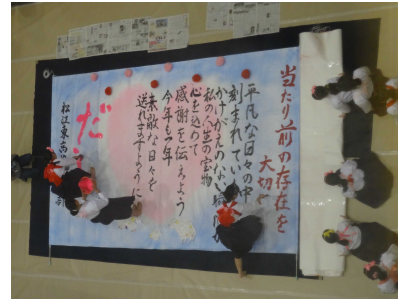 当たり前の存在を
大切に
平凡な日々の中
刻まれていく
かけがえのない
私の人生の宝物
心を込めて
感謝を伝えよう
今年も一年
素敵な日々を
送れますように
だ
松江東高
部